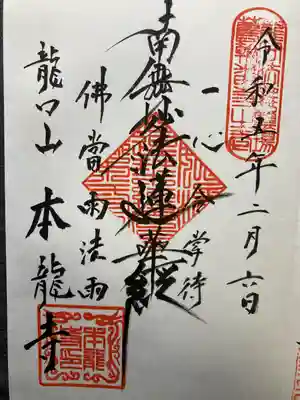 令和五年二月六日
一心合掌待
南無妙法蓮華経
佛當雨法雨
龍口山 本龍寺